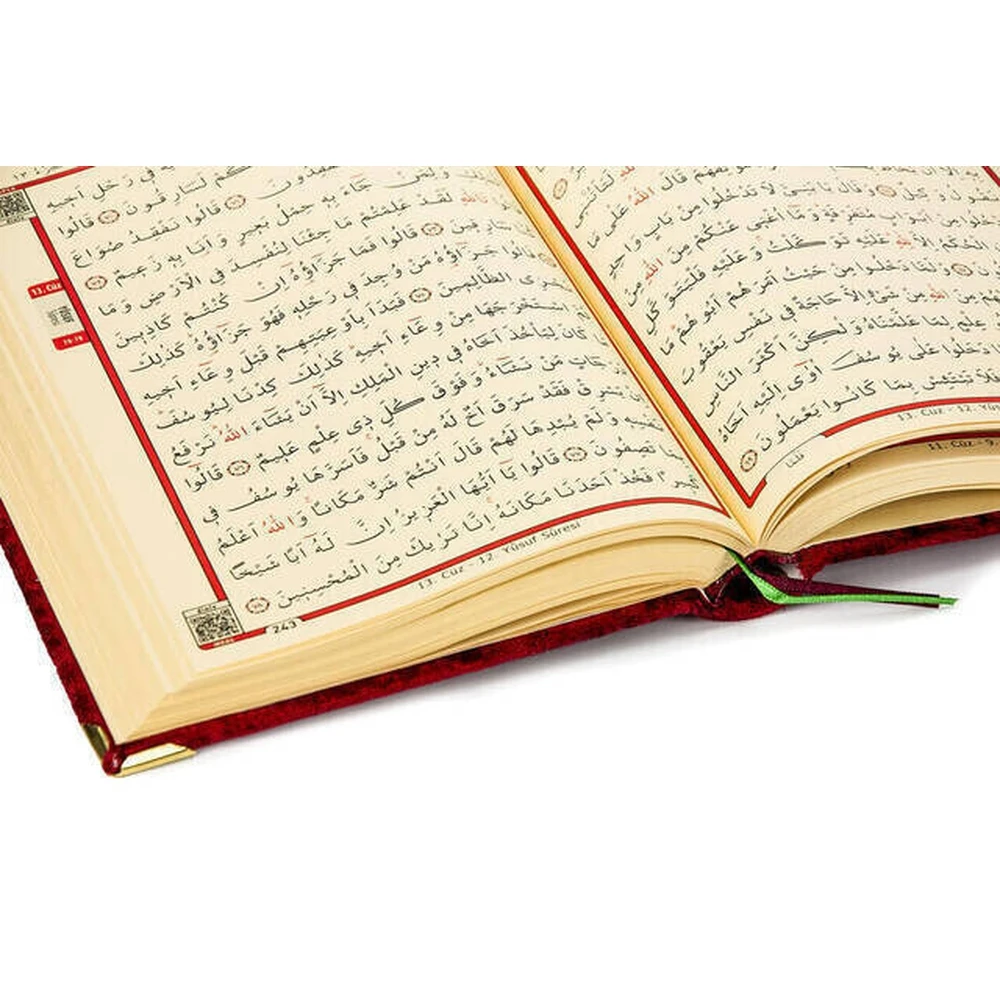 مَوْثِقَهُمْ قَالَ اللّٰهُ عَلٰى مَا
وَكٖيلٌ وَقَالَ يَا بَنِيَّ لَا تَدْخُلُوا مِنْ بَابٍ وَاحِدٍ
مِنْ اَبْوَابٍ مُتَفَرِّقَةٍ وَمَٓا اُغْنٖي عَنْكُمْ مِنَ اللّٰهِ مِنْ
الْحُكْمُ اِلَّا لِلّٰهِ عَلَيْهِ تَوَكَّلْتُ وَعَلَيْهِ فَلْيَتَوَكَّلِ
وَلَمَّا دَخَلُوا مِنْ حَيْثُ اَمَرَهُمْ اَبُوهُمْ مَا
مِنَ اللّٰهِ مِنْ شَيْءٍ اِلَّا حَاجَةً فٖي نَفْسِ يَعْقُوبَ
عِلْمٍ لِمَا عَلَّمْنَاهُ وَلٰكِنَّ اَكْثَرَ النَّاسِ
دَخَلُوا عَلٰى يُوسُفَ اٰوٰٓى اِلَيْهِ اَخَاهُ
فَلَا تَبْتَئِسْ بِمَا كَانُوا يَعْمَلُونَ
13. Cüz - 12. Yûs
11. Cüz - 9.
فٖي رَحْلِ اَخٖيهِ
لَسَارِقُونَ قَالُوا
قَالُوا نَفْقِدُ صُوَاعَ
وَلِمَنْ جَٓاءَ بِهٖ حِمْلُ بَعٖيرٍ وَاَنَا بِهٖ زَعٖيمٌ
تَاللّٰهِ لَقَدْ عَلِمْتُمْ مَا جِئْنَا لِنُفْسِدَ فِي الْاَرْضِ وَمَا
سَارِقٖينَ قَالُوا فَمَا جَزَٓاؤُ۬هُٓ اِنْ كُنْتُمْ كَاذِبٖينَ
قَالُوا جَزَٓاؤُ۬هُ مَنْ وُجِدَ فٖي رَحْلِهٖ فَهُوَ جَزَٓاؤُ۬هُ كَذٰلِكَ
نَجْزِي الظَّالِمٖينَ فَبَدَاَ بِاَوْعِيَتِهِمْ قَبْلَ وِعَٓاءِ اَخٖيهِ
اسْتَخْرَجَهَا مِنْ وِعَٓاءِ اَخٖيهِ كَذٰلِكَ كِدْنَا لِيُوسُفَ
كَانَ لِيَأْخُذَ اَخَاهُ فٖي دٖينِ الْمَلِكِ اِلَّٓا اَنْ يَشَٓاءَ اللّٰهُ نَرْفَعُ
مَنْ نَشَٓاءُ وَفَوْقَ كُلِّ ذٖي عِلْمٍ عَلٖيمٌ قَالُٓوا
يَسْرِقْ فَقَدْ سَرَقَ اَخٌ لَهُ مِنْ قَبْلُ فَاَسَرَّهَا يُوسُفُ فٖي
وَلَمْ يُبْدِهَا لَهُمْ قَالَ اَنْتُمْ شَرٌّ مَكَانًا وَاللّٰهُ اَعْلَمُ
تَصِفُونَ قَالُوا يَٓا اَيُّهَا الْعَزٖيزُ اِنَّ لَهُٓ اَبًا شَيْخًا
فَخُذْ اَحَدَنَا مَكَانَهُ اِنَّا نَرٰيكَ مِنَ الْمُحْسِنٖينَ
13. Cüz - 12. Yûsuf Sûresi
243
13. Cüz